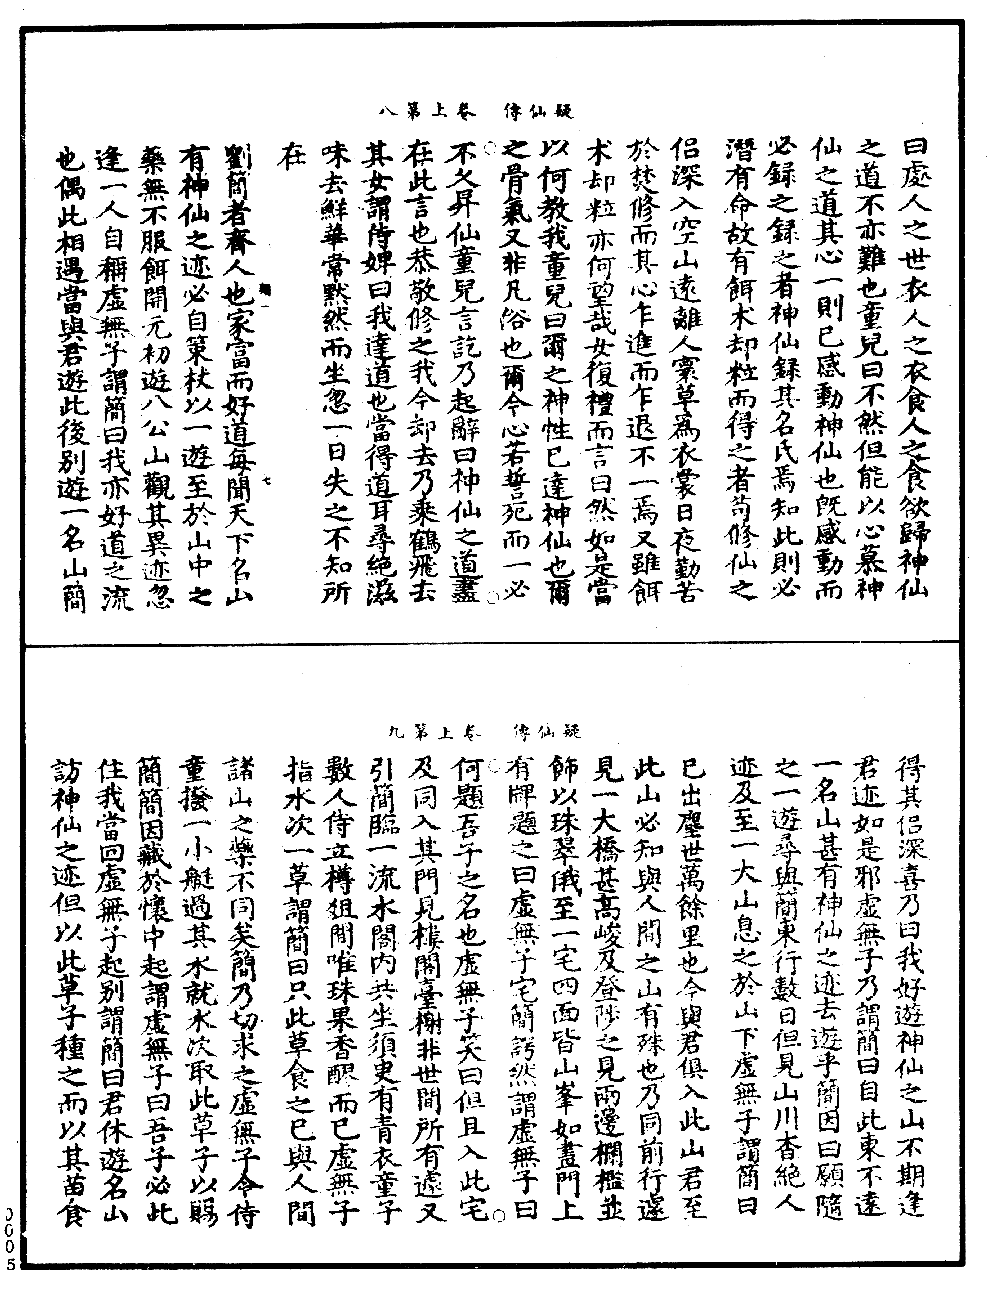 疑仙傳　卷上第八
曰處人之世衣人之衣食人之食欲歸神仙
之道不亦難也童兒曰不然但能以心慕神
仙之道其心一則已感動神仙也旣感動而
必録之録之者神仙録其名氏焉知此則必
潛有命故有餌术却粒而得之者苟修仙之
侣深入空山遠離人寰草爲衣裳日夜勤苦
於焚修而其心乍進而乍退不一焉又雖餌
术却粒亦何望哉女復禮而言曰然如是當
以何教我童兒曰爾之神性已達神仙也爾
之骨氣又非凡俗也爾今心若誓死而一必
不久昇仙童兒言訖乃起辭曰神仙之道盡
在此言也恭敬修之我今却去乃乘鶴飛去
其女謂侍婢曰我達道也當得道耳尋絶滋
味去鮮華常默然而坐忽一日失之不知所
在
劉簡者齊人也家富而好道每聞天下名山
有神仙之迹必自策杖以一遊至於山中之
藥無不服餌開元初遊八公山觀其異迹忽
逢一人自稱虛無子謂簡曰我亦好道之流
也偶此相遇當與君遊此後别遊一名山簡
七
疑仙傳　卷上第九
得其侣深喜乃曰我好遊神仙之山不期逢
君迹如是邪虛無子乃謂簡曰自此東不遠
一名山甚有神仙之迹去遊乎簡因曰願隨
之一遊尋與簡東行數日但見山川杳絶人
迹及至一大山息之於山下虛無子謂簡曰
已出塵世萬餘里也今與君俱入此山君至
此山必知與人間之山有殊也乃同前行遽
見一大橋甚高峻及登陟之見兩邊欄檻並
飾以珠翠俄至一宅四面皆山峯如畫門上
有牌題之曰虛無子宅簡謂然謂虛無子曰
何題吾子之名也虛無子笑曰但且入此宅
及同入其門見樓閣臺榭非世間所有遽又
引簡臨一流水閣内共坐須臾有青衣童子
數人侍立樽俎間唯珠果香醪而已虛無子
指水次一草謂簡曰只此草食之已與人間
諸山之藥不同矣簡乃切求之虛無子令侍
童撥一小艇過其水就水次取此草子以賜
簡簡因藏於懷中起謂虛無子曰吾子必此
住我當回虛無子起别謂簡曰君休遊名山
訪神仙之迹但以此草子種之而以其苗食
0005